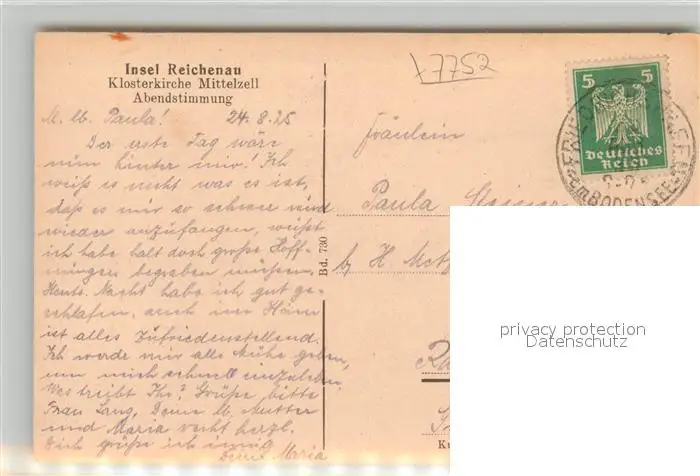 Insel Reichenau
Klosterkirche Mittelzell
Abendstimmung
M. lb. Paula! 24.8.25
Der erste Tag wäre
nun hinter mir! Ich
weiß es nicht was es ist,
daß es mir so schwer wird
wieder anzufangen, weißt
ich habe halt doch große Hoff-
nungen begraben müssen.
Heute Nacht habe ich gut ge-
schlafen, auch im Hörn
ist alles Zufriedenstellend.
Ich werde mir alle Mühe geben,
um mich schnell einzuleben.
Was treibt Ihr? Grüße bitte
Frau Lang, Deine lb. Mutter
und Maria recht herzl.
Dich grüße ich innig
Deine Maria
Bd. 730
17752
Fräulein
Paula
b/ H. Metz
5 5
Deutsches
Reich
BODENSEE
privacy protection
Datenschutz